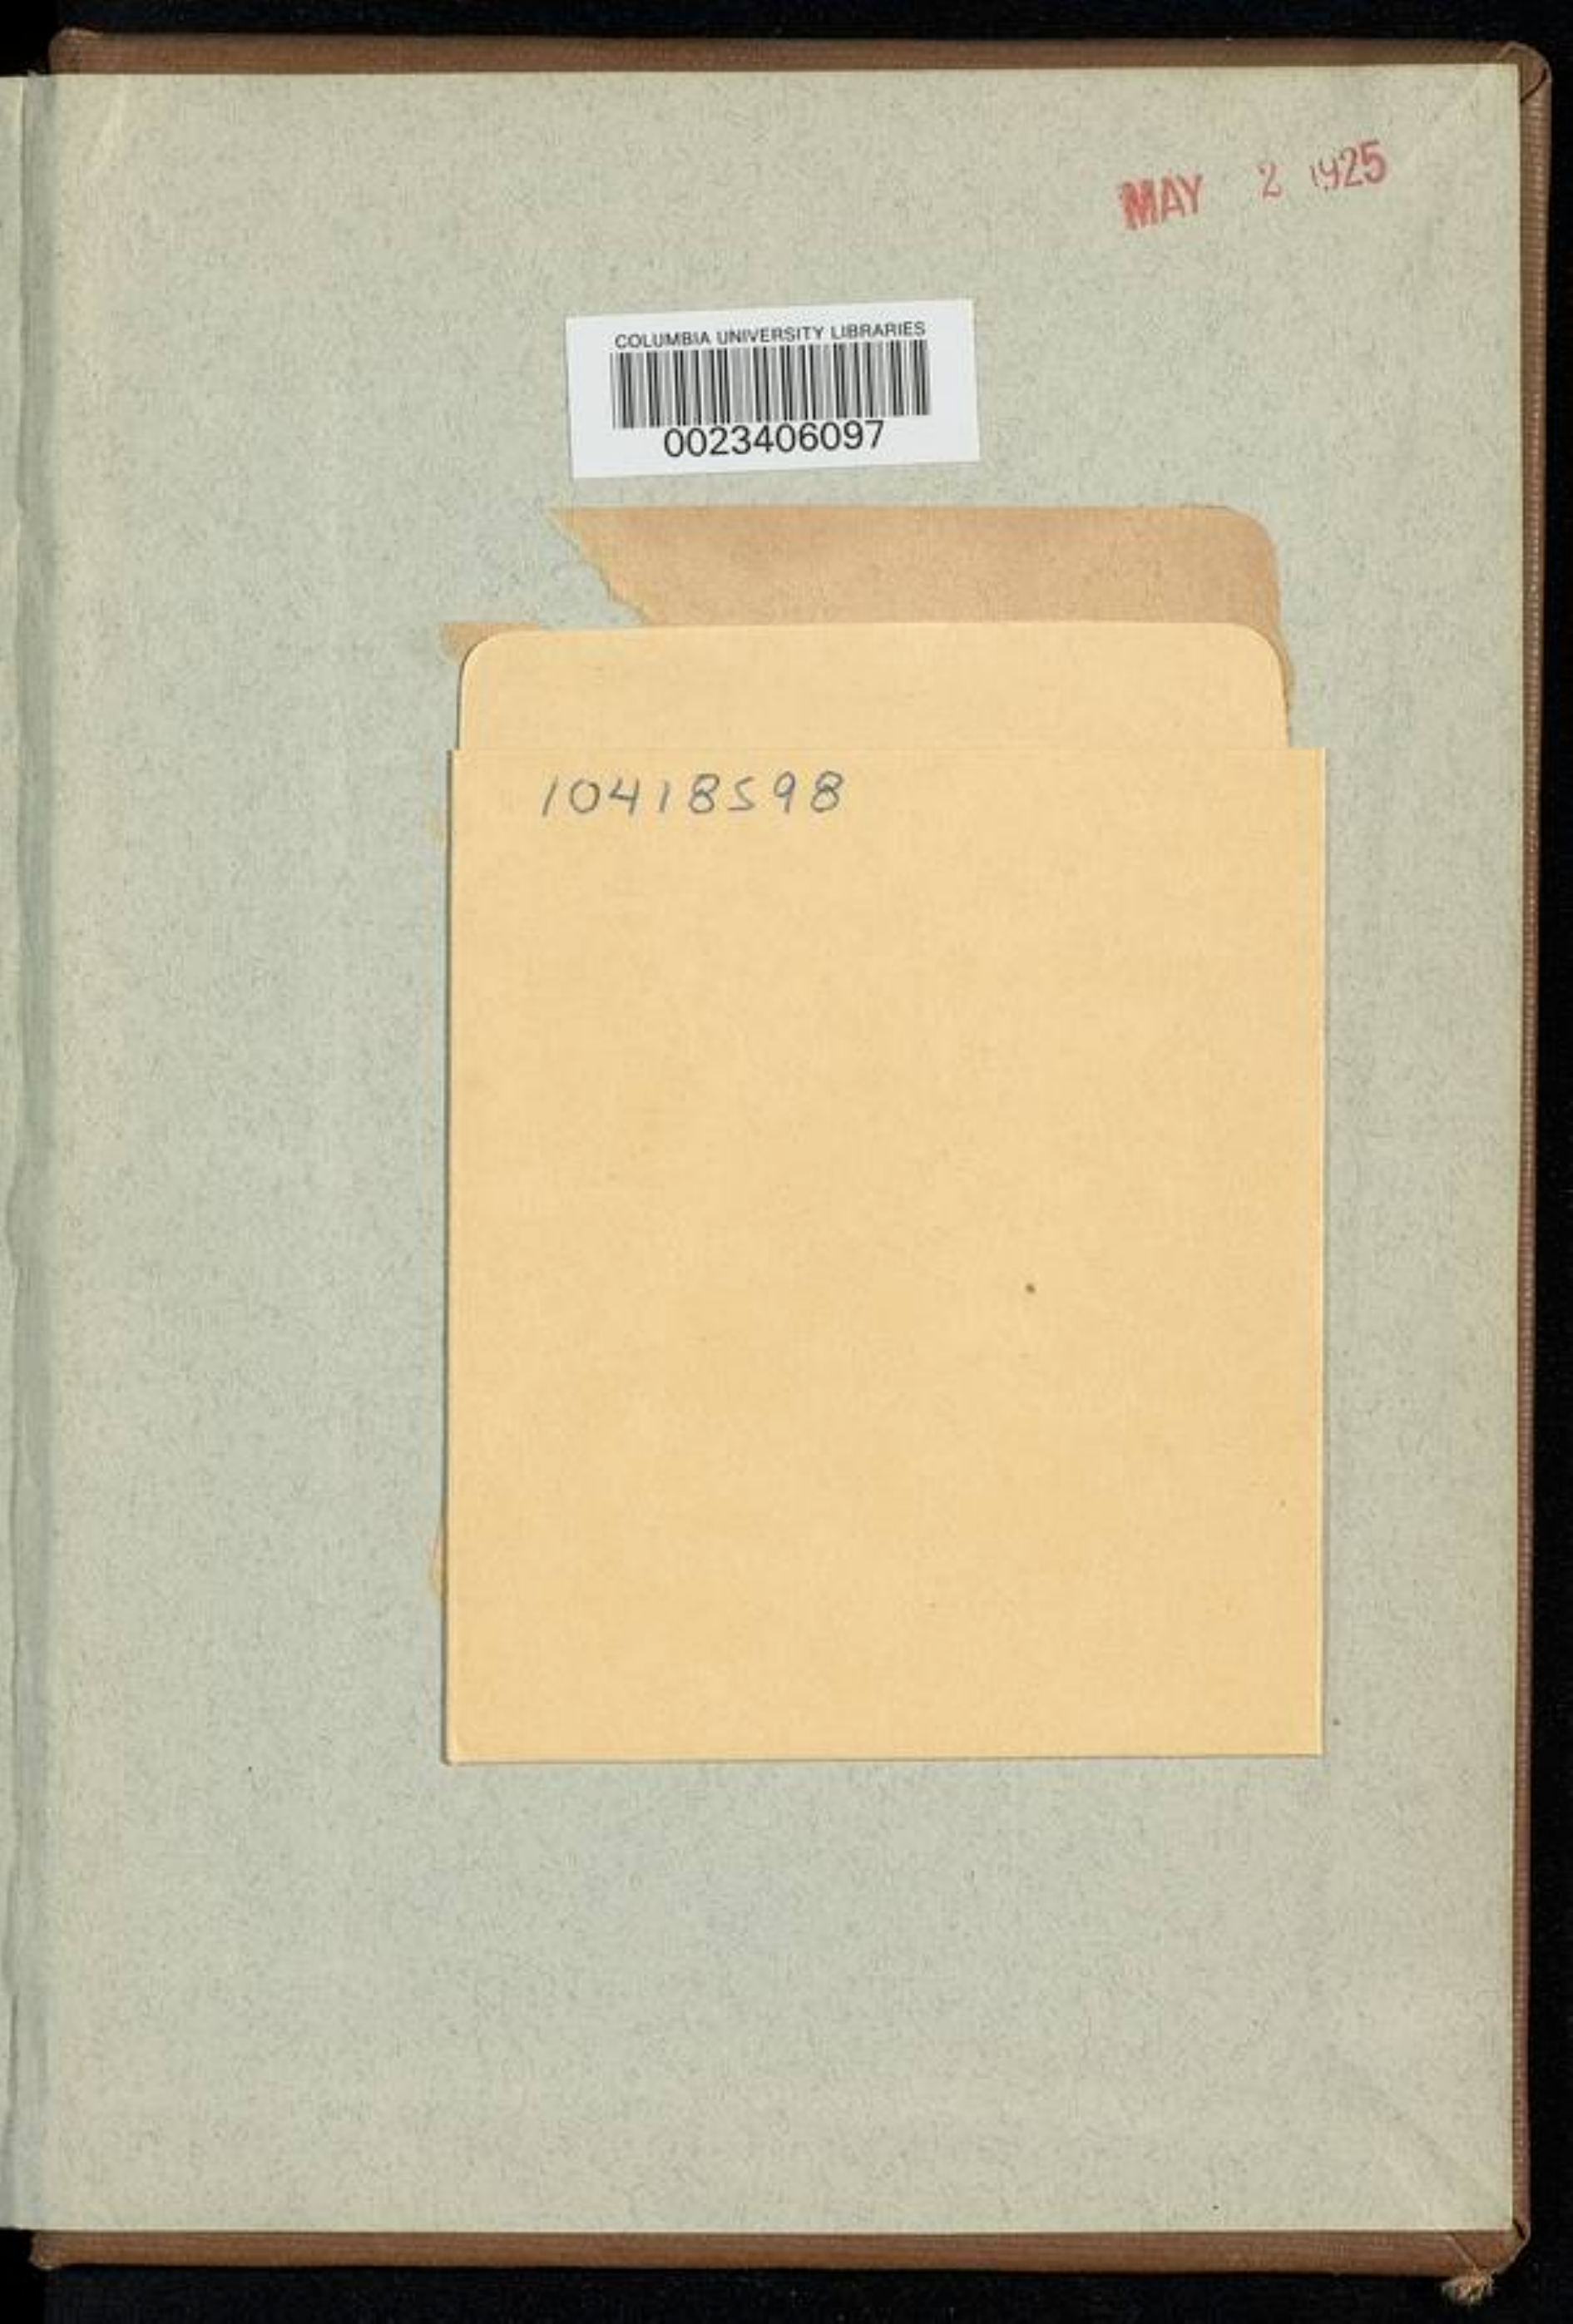 MAY 2 1925
COLUMBIA UNIVERSITY LIBRARIES
0023406097
10418598